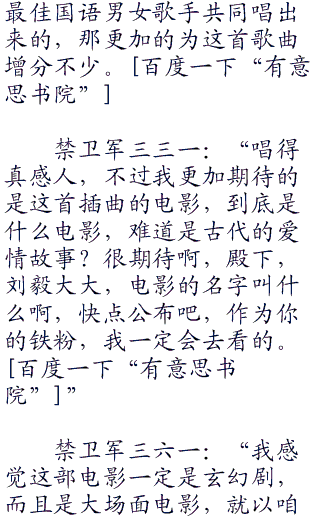 最佳国语男女歌手共同唱出
来的，那更加的为这首歌曲
增分不少。[百度一下“有意
思书院”]
禁卫军三三一：“唱得
真感人，不过我更加期待的
是这首插曲的电影，到底是
什么电影，难道是古代的爱
情故事？很期待啊，殿下，
刘毅大大，电影的名字叫什
么啊，快点公布吧，作为你
的铁粉，我一定会去看的。
[百度一下“有意思书
院”]”
禁卫军三六一：“我感
觉这部电影一定是玄幻剧，
而且是大场面电影，就以咱